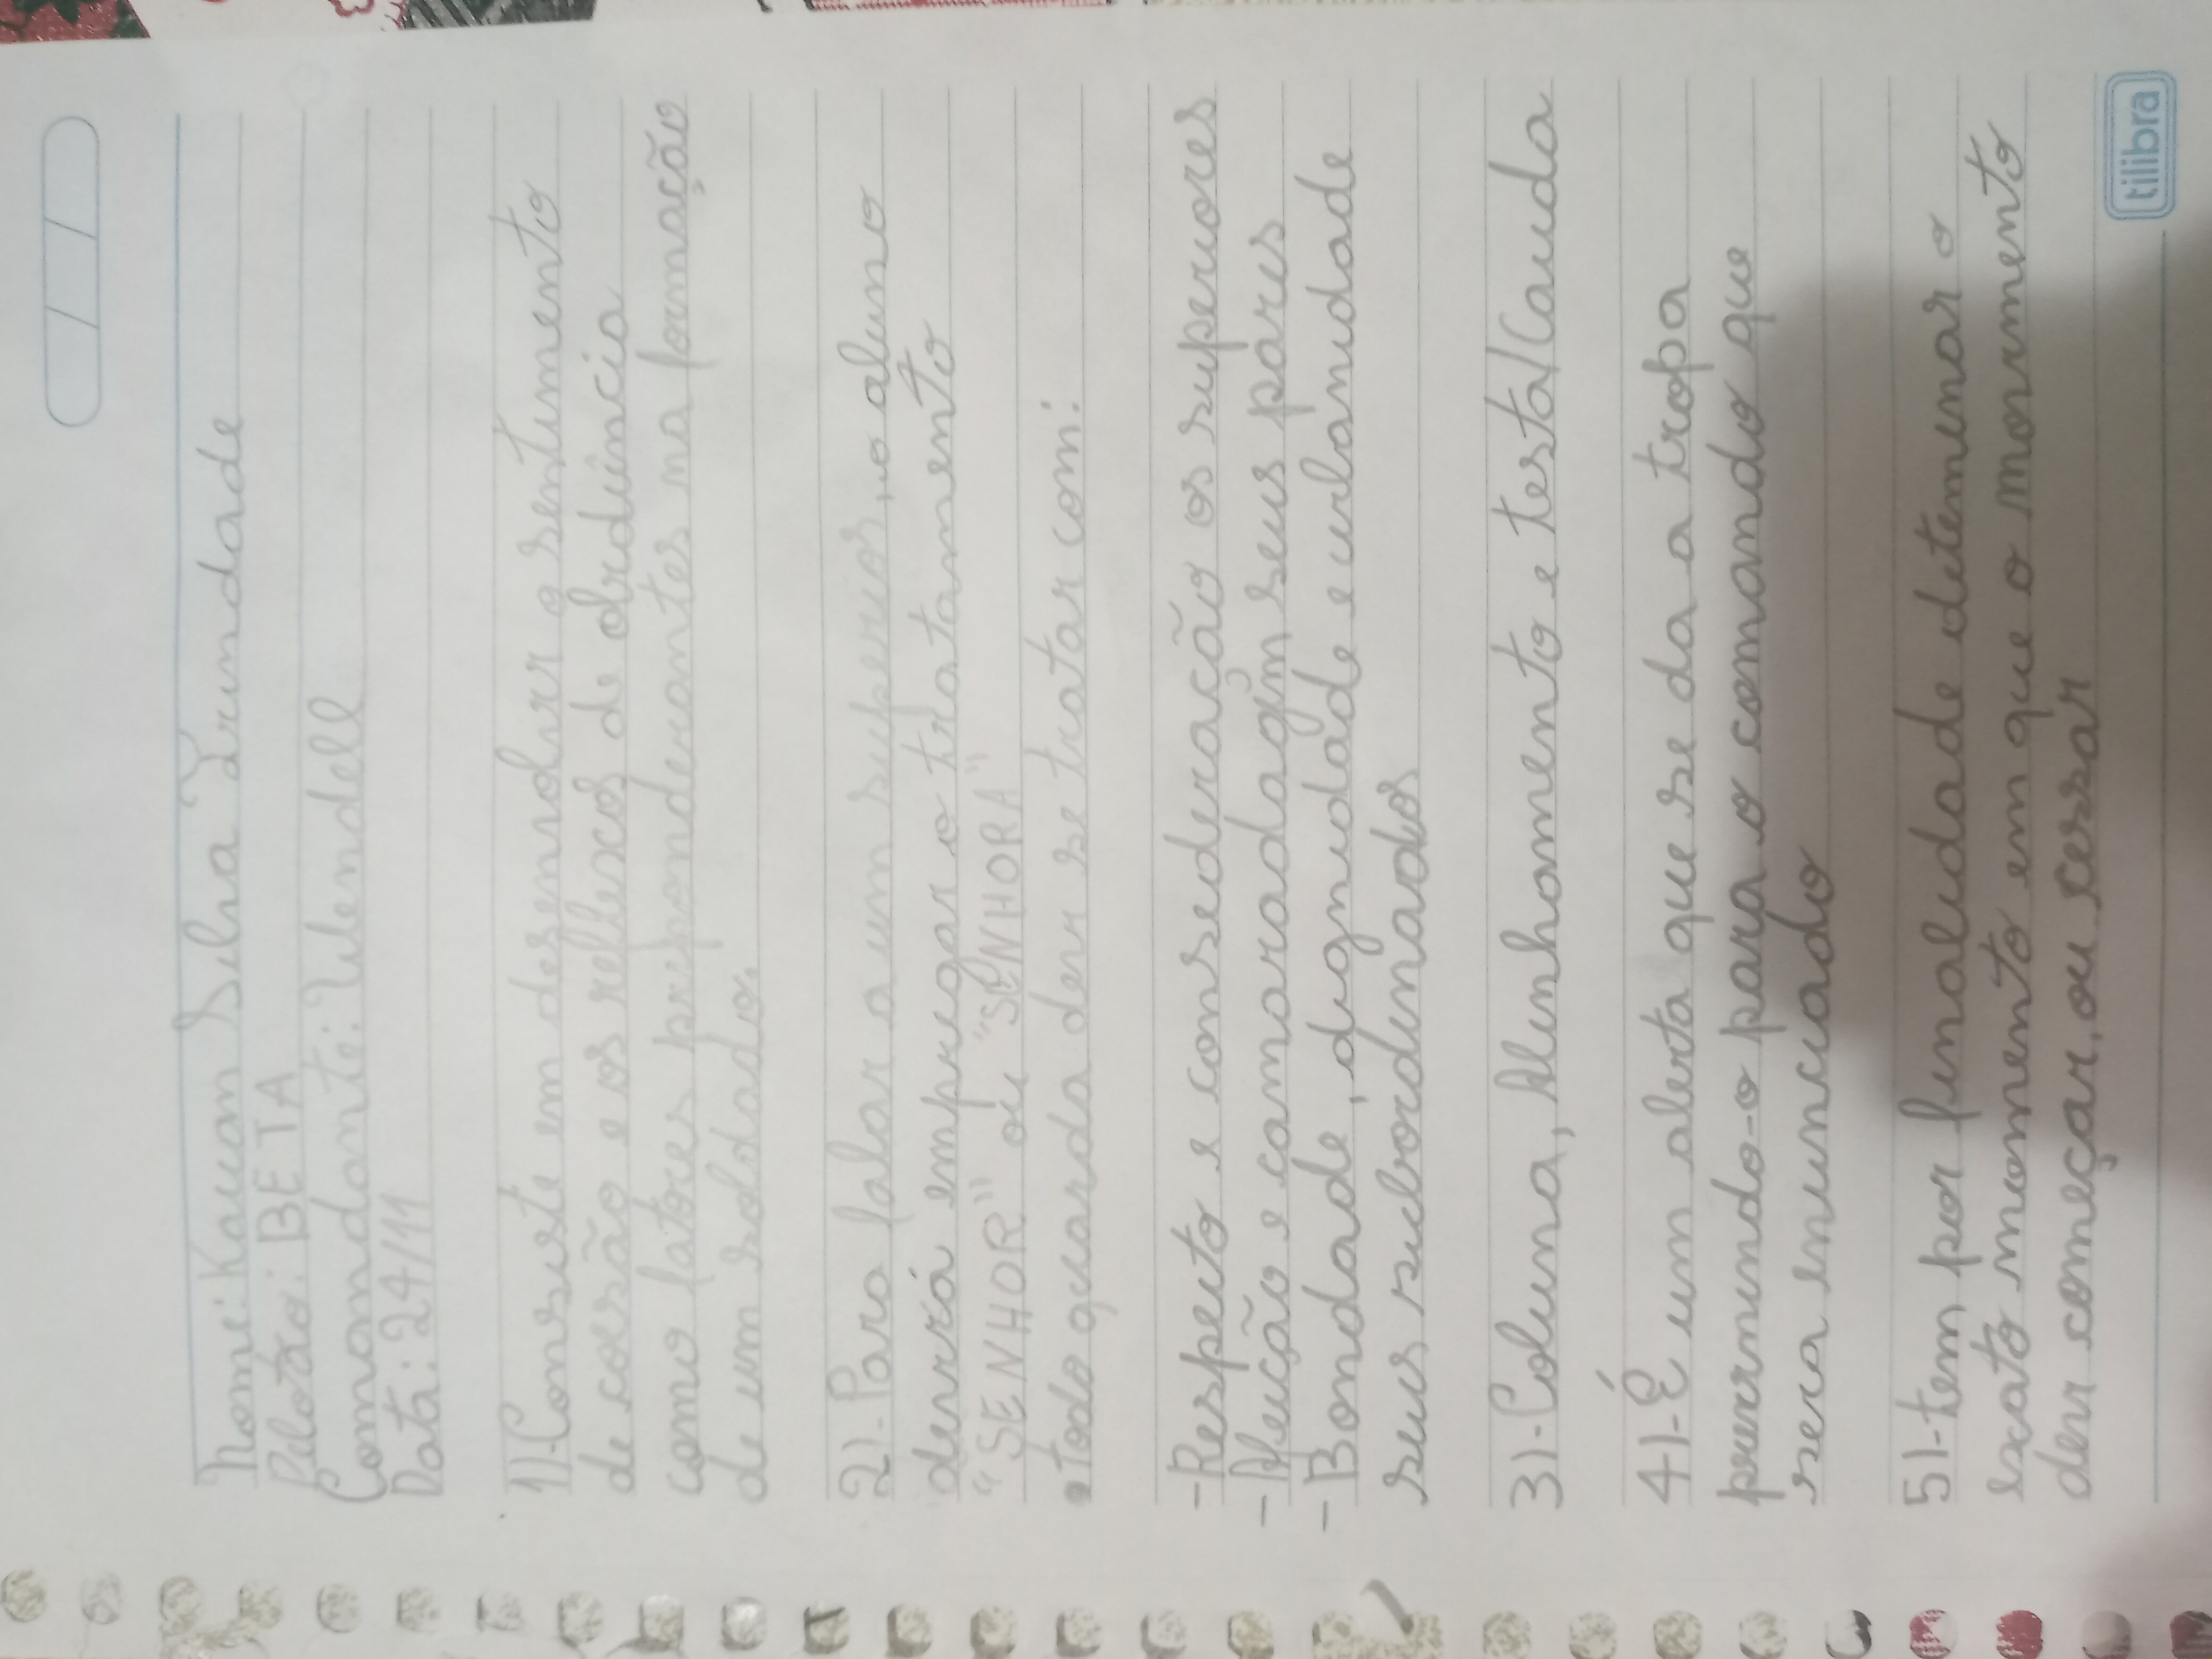 Nome: Kauan Silva Trindade
Pelotão: BETA
Comandante: Wendell
Data: 24/11
1)-Consiste em desenvolver o sentimento
de coesão e os reflexos de obediência
como fatores preponderantes na formação
de um soldado.
2)-Para falar a um superior, o aluno
deverá empregar o tratamento
"SENHOR" ou "SENHORA"
•todo guarda deve se tratar com:
-Respeito e consederação os superiores
-Afeição e camaradagem seus pares
-Bondade, dignidade e urbanidade
seus subordinados
3)-Coluna, Alinhamento e testa/Cauda
4)-É um alerta que se da a tropa
prevenindo-o para o comando que
sera enunciado
5)-tem por finalidade deteminar o
exato momento em que o movimento
deve começar, ou cessar
tilibra